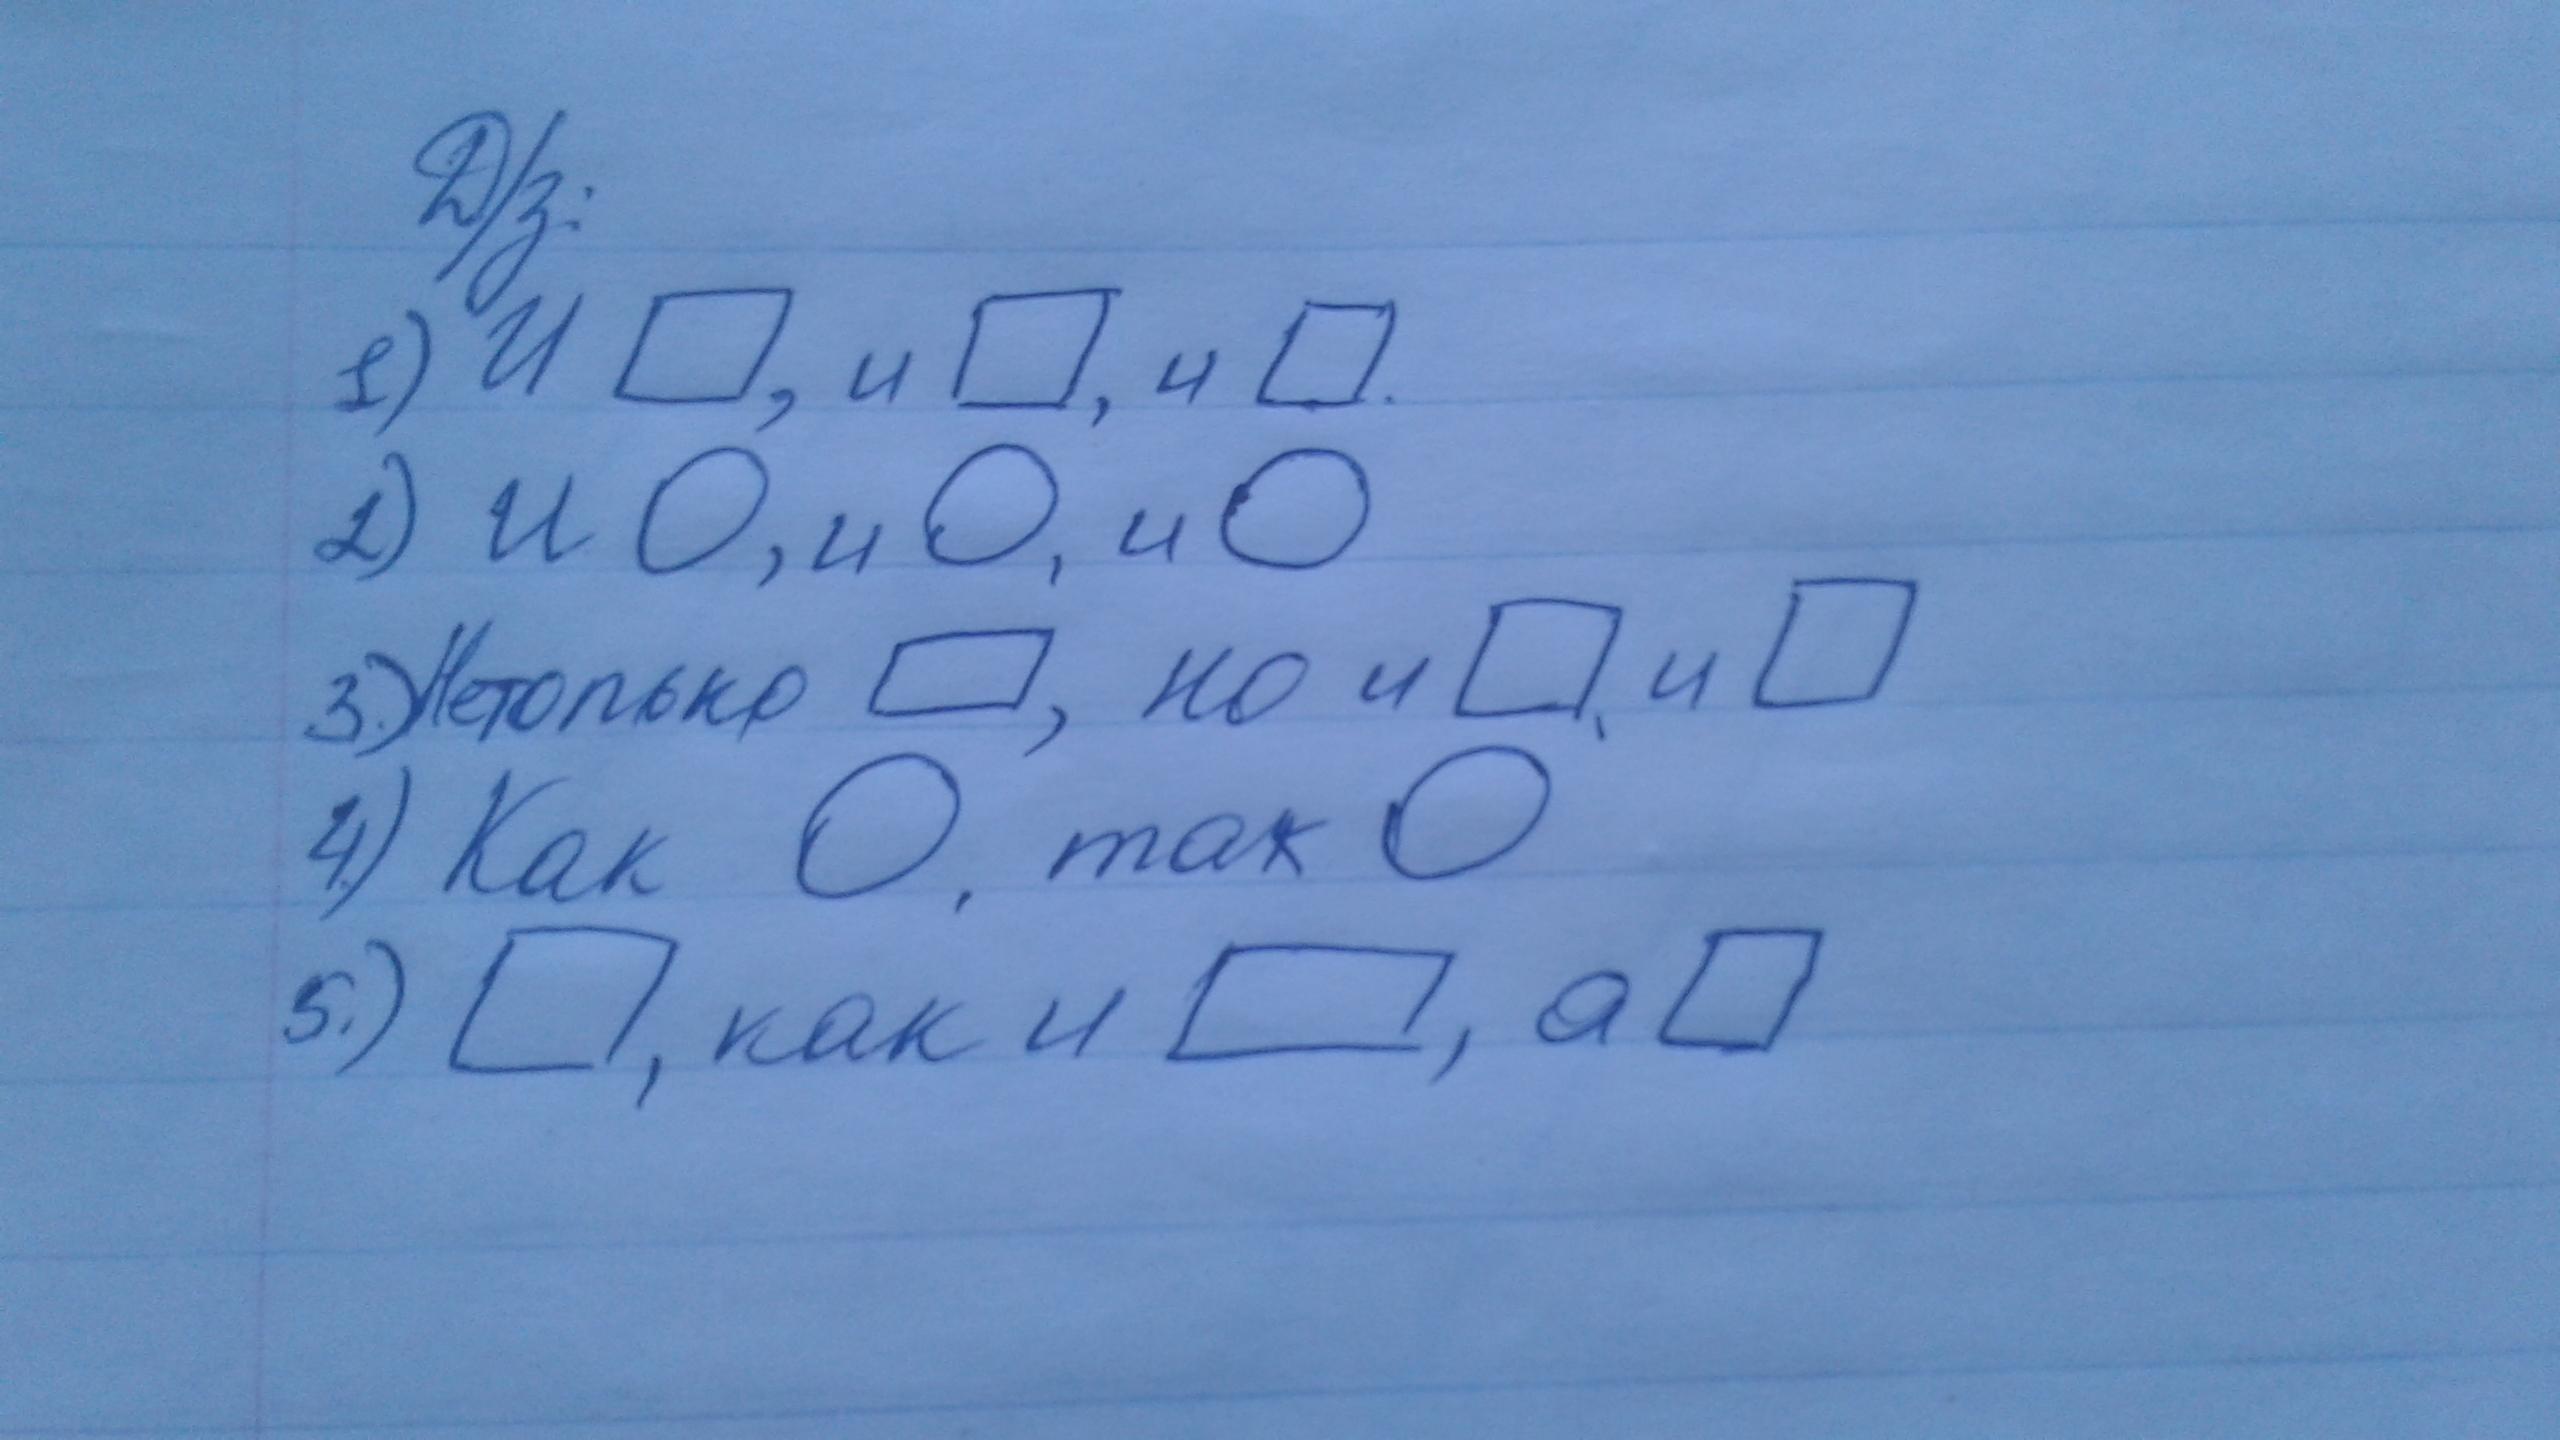 Д/з:
1) И □, и □, и □.
2) И ○, и ○, и ○
3.) Нетолько □, но и □, и □
4.) Как ○, так ○
5.) □, как и □, а □